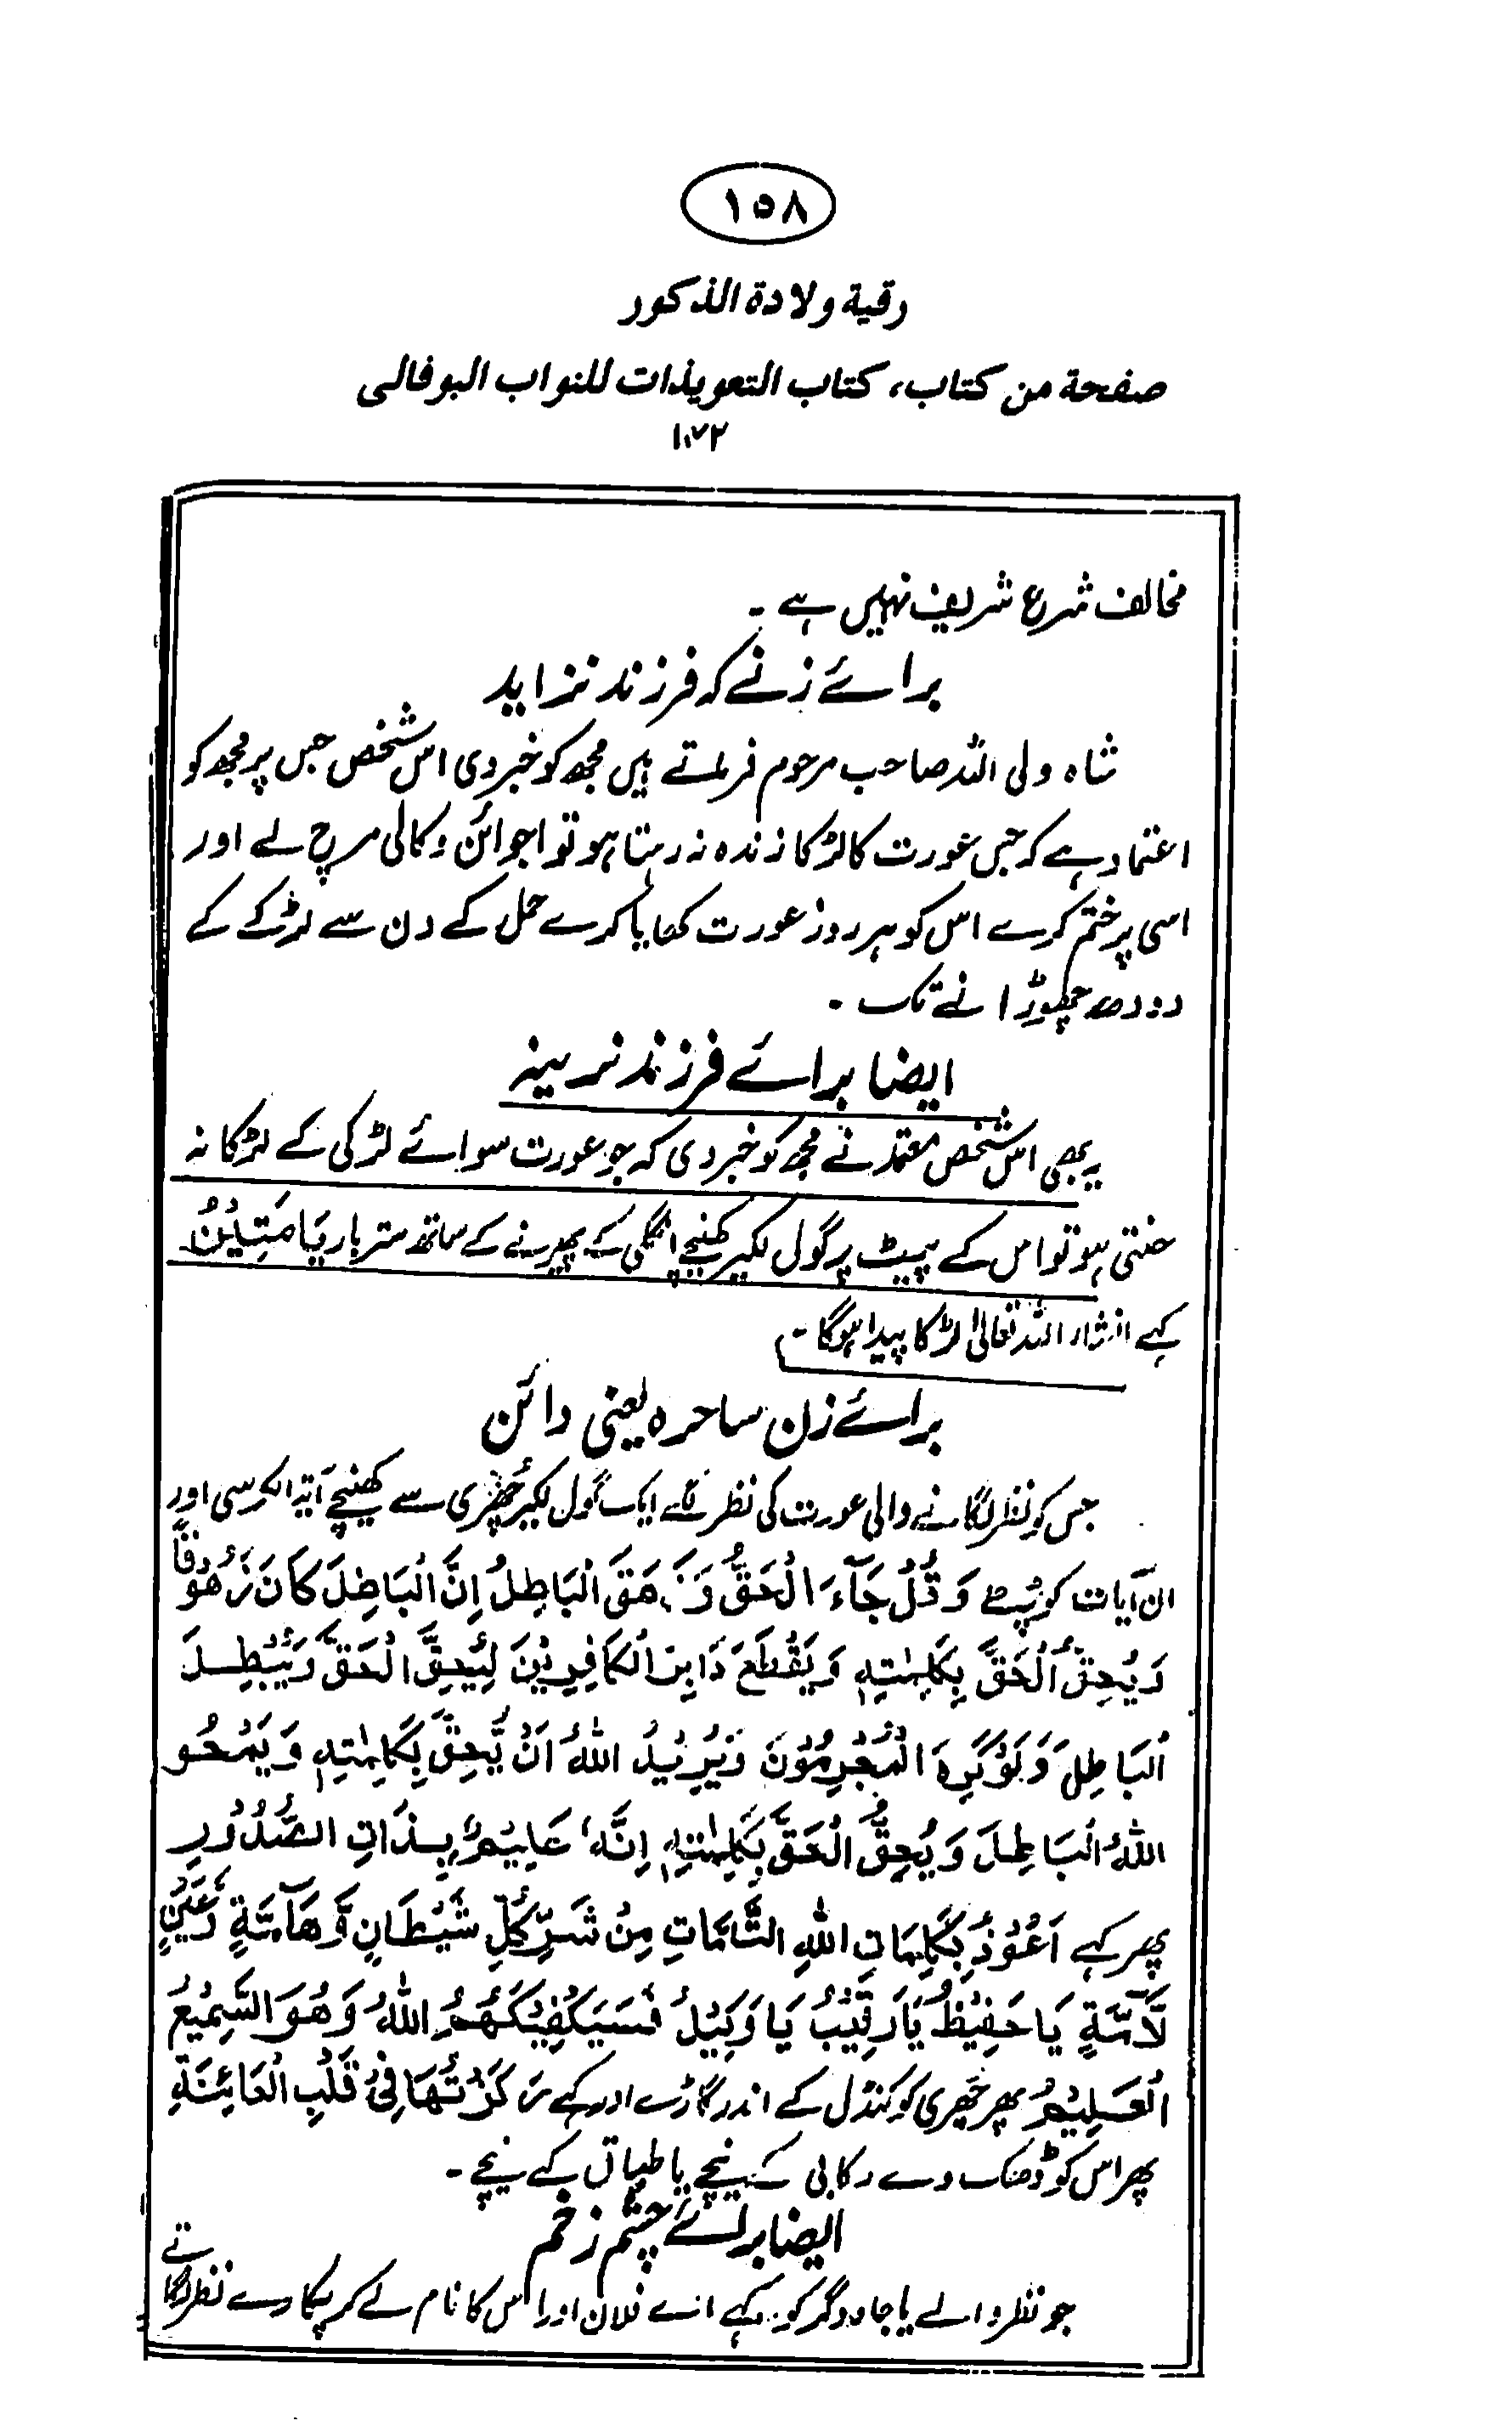 ١٥٨
رقية ولادة الذكور
صفحة من كتاب، كتاب التعويذات للنواب البوفالى
مخالف شرع شریف نہیں ہے ۔
برائے زنے کہ فرزند نزاید
شاہ ولی اللہ صاحب مرحوم فرماتے ہیں مجھ کو خبر دی اس شخص جس پر مجھ کو
اعتماد ہے کہ جس عورت کا لڑکا زندہ نہ رہتا ہو تو اجوائن و کالی مرچ لے اور
اسی پر ختم کرے اس کو ہر روز عورت کھایا کرے حمل کے دن سے لڑکے کے
دودھ چھوڑانے تک ۔
ایضا برائے فرزند نرینہ
یہ بھی اس شخص معتمد نے مجھ کو خبر دی کہ جو عورت سوائے لڑکی کے لڑکا نہ
جنتی ہو تو اس کے پیٹ پر گول لکیر کھنیچے انگلی کے پھیرنے کے ساتھ ستر بار یَا مَتِیْنُ
کہے انشاء اللہ تعالیٰ لڑکا پیدا ہوگا ۔
برائے زن ساحرہ یعنی دائن
جس کو نظر لگانے والی عورت کی نظر لگے ایک گول لکیر چھُری سے کھینچے آیۃ الکرسی اور
ان آیات کو پڑھے وَ قُلْ جَآءَ الْحَقُّ وَزَهَقَ الْبَاطِلُ اِنَّ الْبَاطِلَ كَانَ زَهُوْقًا
وَيُحِقُّ الْحَقَّ بِكَلِمٰتِهٖ وَيَقْطَعَ دَابِرَ الْكَافِرِيْنَ لِيُحِقَّ الْحَقَّ وَيُبْطِلَ
الْبَاطِلَ وَلَوْ كَرِهَ الْمُجْرِمُوْنَ وَيُرِيْدُ اللّٰهُ اَنْ يُّحِقَّ بِكَلِمٰتِهٖ وَيَمْحُو
اللّٰهُ الْبَاطِلَ وَيُحِقُّ الْحَقَّ بِكَلِمٰتِهٖ اِنَّهٗ عَلِيْمٌۢ بِذَاتِ الصُّدُوْرِ
پھر کہے اَعُوْذُ بِكَلِمَاتِ اللّٰهِ التَّامَّاتِ مِنْ شَرِّ كُلِّ شَيْطَانٍ وَّهَآمَّةٍ وَّعَيْنٍ
لَّآمَّةٍ يَا حَفِيْظُ يَا رَقِيْبُ يَا وَكِيْلُ فَسَيَكْفِيْكَهُمُ اللّٰهُ وَهُوَ السَّمِيْعُ
الْعَلِيْمُ پھر چھری کو کنڈل کے اندر گاڑے اور کہے رَكَزْتُهَا فِىْ قَلْبِ الْعَائِنَةِ
پھر اس کو ڈھنک دے رکابی کے نیچے یا طباق کے نیچے ۔
ایضا برائے چشم زخم
جو نظر والے یا جادوگر کو کہے اے فلان اور اس کا نام لے کر پکارے نظر لگاتے